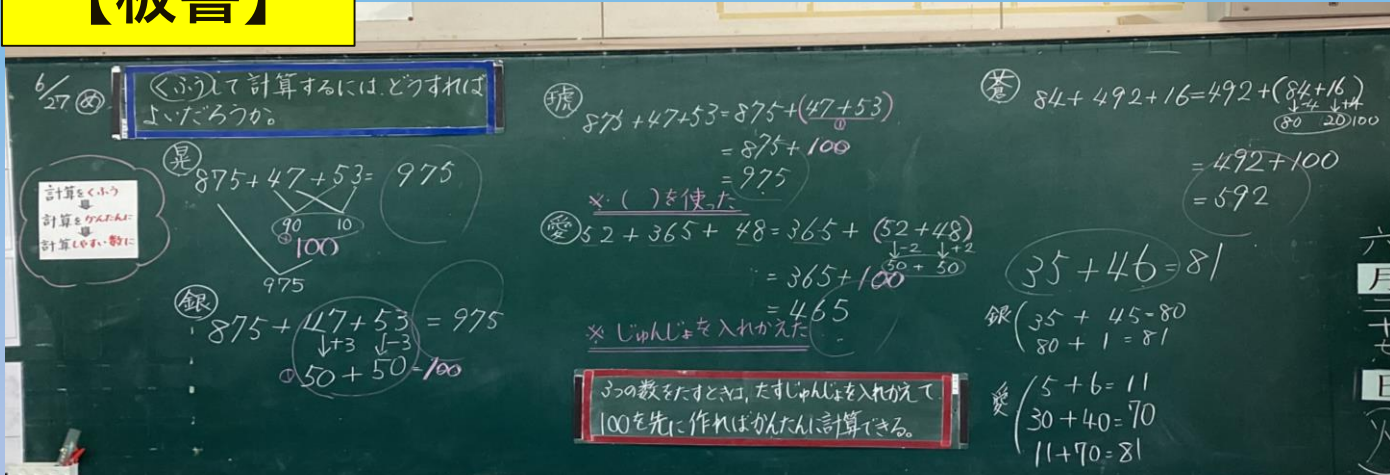 【板書】
6/27 め
くふうして計算するには、どうすれば
よいだろうか。
計算をくふう
計算をかんたんに
計算しやすい数に
晃
875+47+53= 975
90 10
① 100
975
銀
875+47+53=975
↓+3 ↓-3
① 50+50=100
琥
875+47+53=875+(47+53)
①
=875+100
=975
※( )を使った
愛
52+365+48=365+(52+48)
↓-2 ↓+2
50+50
=365+100
=465
※じゅんじょを入れかえた
3つの数をたすときは、たすじゅんじょを入れかえて
100を先に作ればかんたんに計算できる。
蒼
84+492+16=492+(84+16)
↓-4 ↓+4
80 20 100
=492+100
=592
35+46=81
銀
35+45=80
80+1=81
愛
5+6=11
30+40=70
11+70=81
六
月
日
火